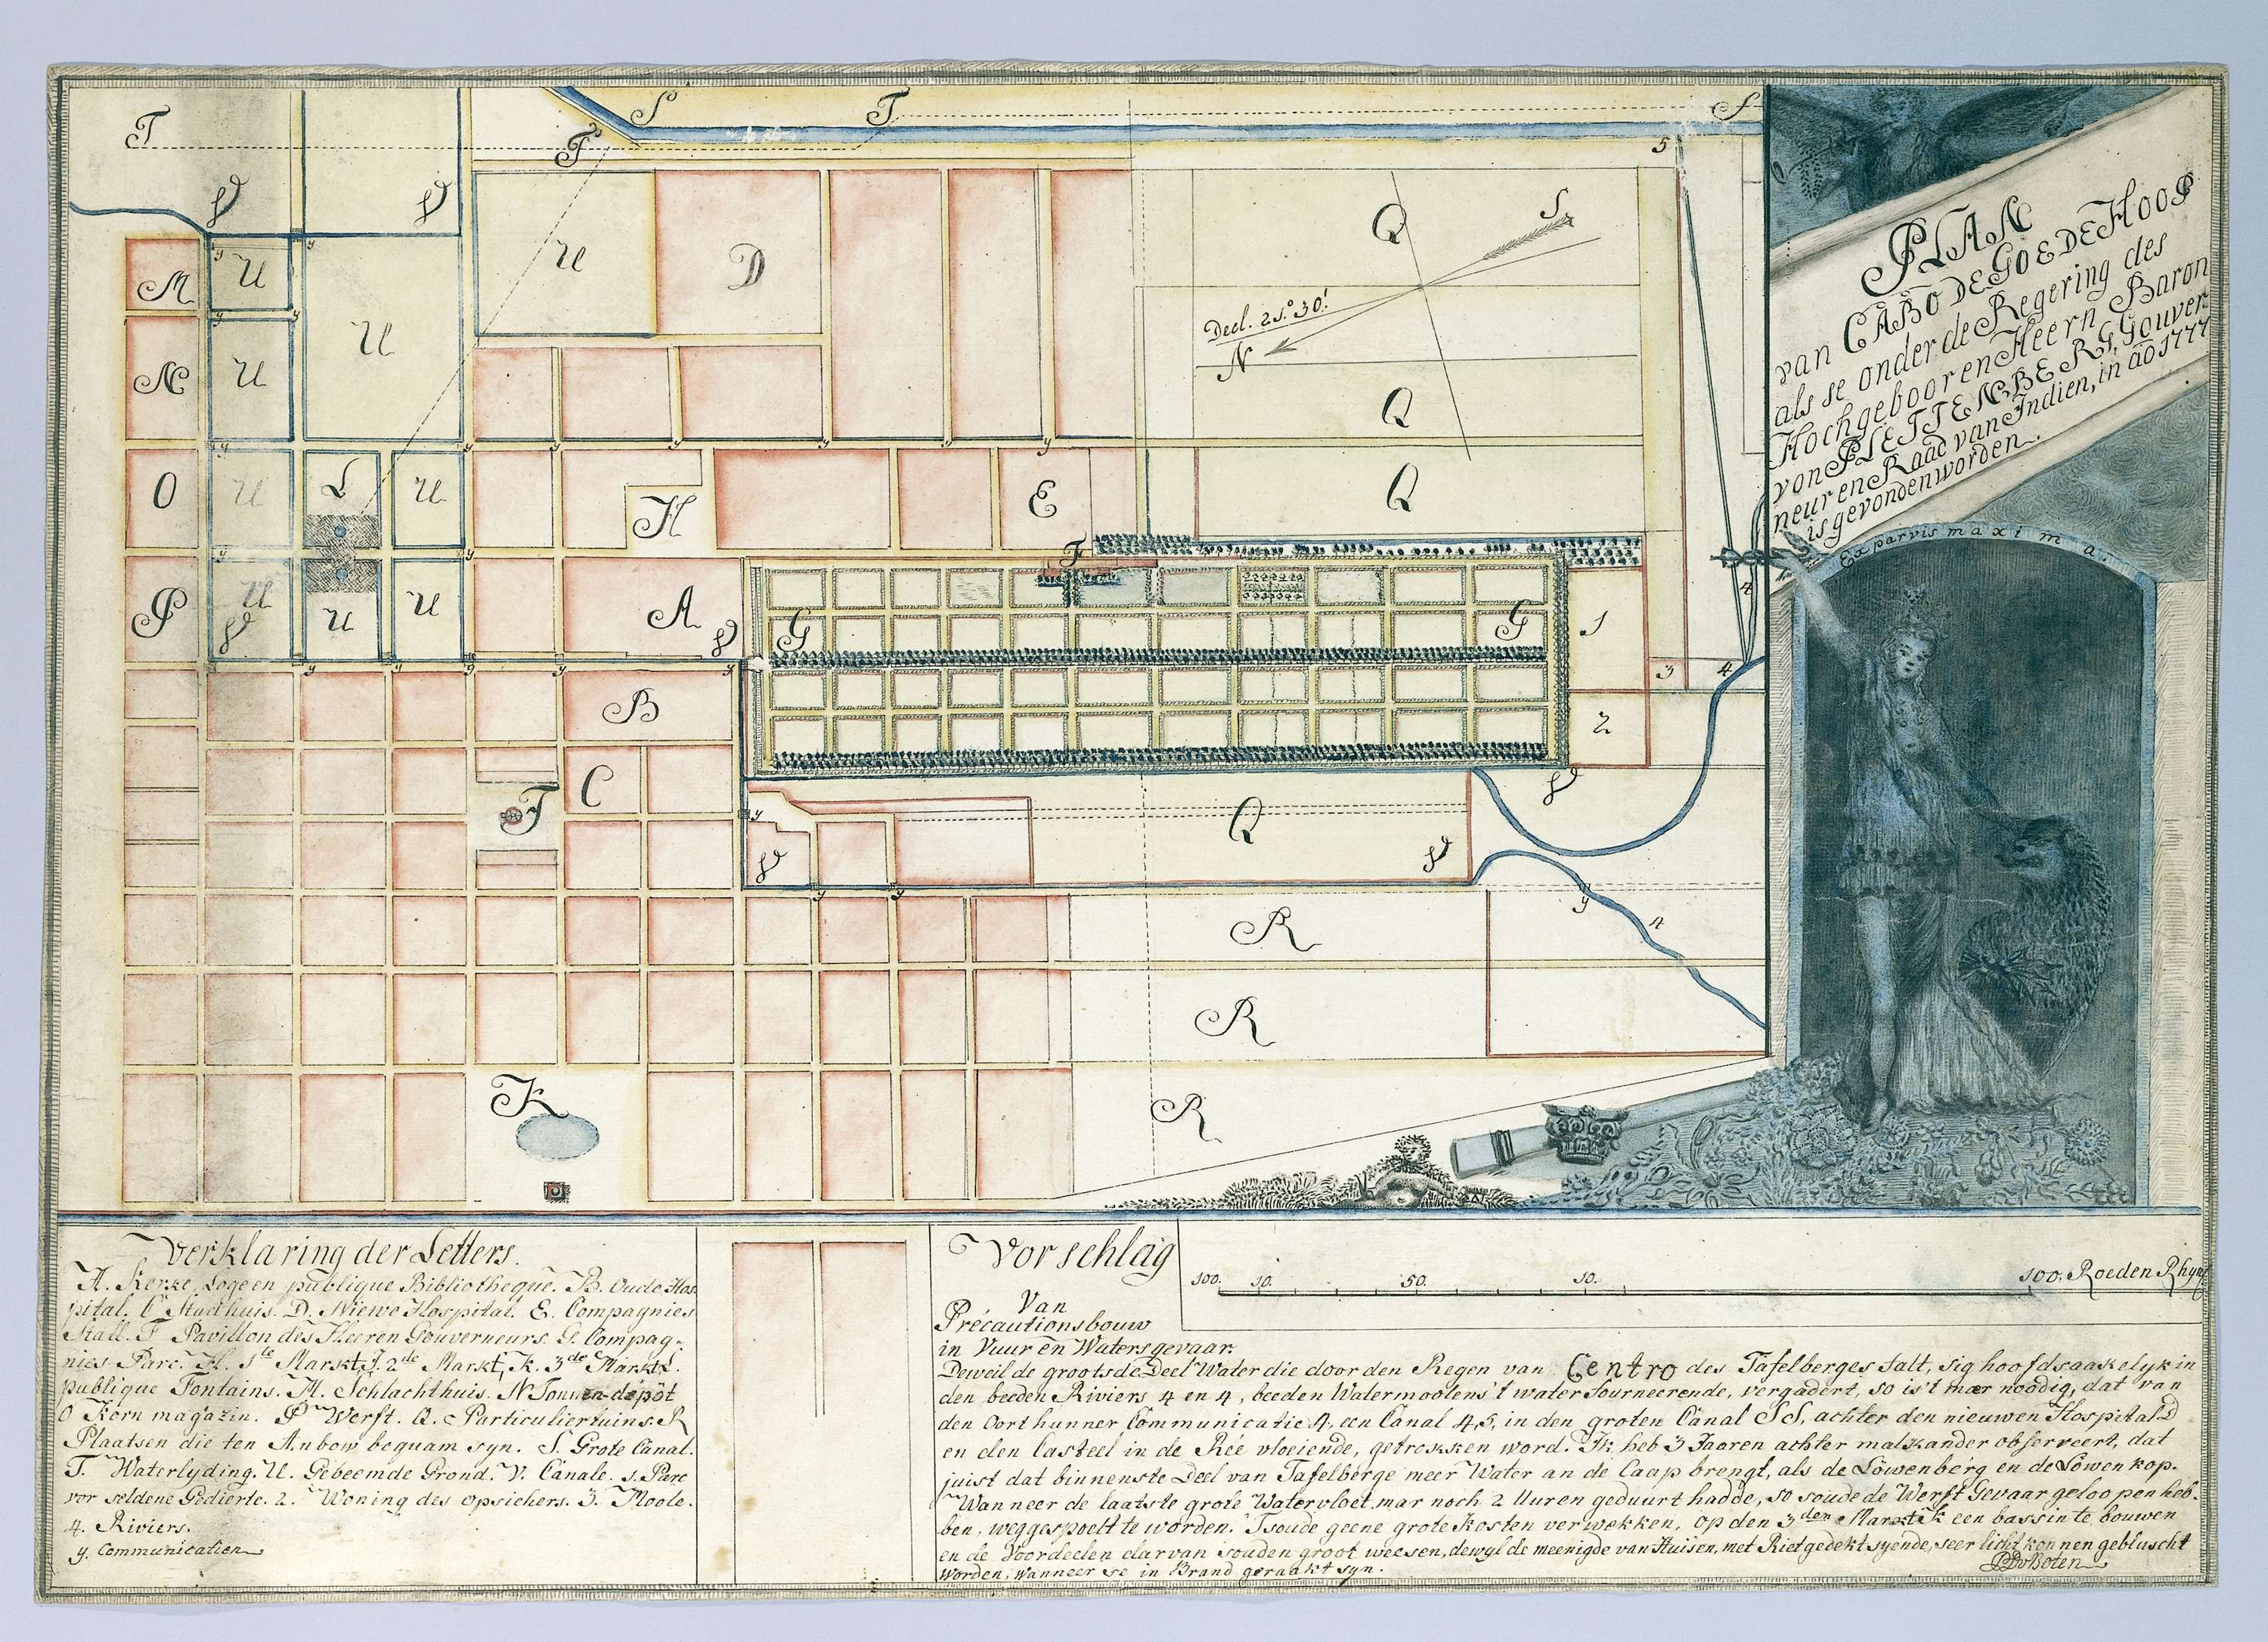 PLAN
van CABO DE GOEDE HOOP
als se onder de Regering des
Hochgebooren Heern Baron
von PLETTENBERG, Gouver
neur en Raad van Indien, in aõ 1777
is gevonden worden.
Ex parvis maxima.
T
S
T
S
T
5
V
V
Q
S
M
U
U
U
D
Decl. 21.° 30!
N
N
U
Q
O
U
L
U
H
E
Q
F
4
P
U
U
U
V
A
V
G
G
1
3
4
B
2
C
J
V
Q
V
V
R
y
4
R
K
R
Verklaring der Letters.
A. Kerke, Loge en publique Bibliotheque. B. Oude Hos
pital. C Stadhuis. D. Niewe Hospital. E. Compagnies
Stall. F Pavillon des Heeren Gouverneurs. G. Compag-
nies Parc. H. 1ste Markt, J. 2de Markt, K. 3de Markt L.
publique Fontains. M. Schlachthuis. N Tonnen depôt
O Korn magazin. P Werft. Q. Particulier tuins. R
Plaatsen die ten Anbow bequam syn. S. Grote Canal.
T. Waterlyding. U. Gebeemde Grond. V. Canale. 1. Parc
vor seldene Gedierte. 2. Woning des opsiehers. 3. Moole.
4. Riviers.
y. Communicatien
Vorschlag
100. 10. 50. 10. 100. Roeden Rhynl
Van
Précautionsbouw
in Vuur en Watersgevaar.
Deweil de grootsde Deel Water die door den Regen van Centro des Tafelberges falt, sig hoofdsaakelyk in
den beeden Riviers 4 en 4, beeden Watermoolens 't water Fourneerende, vergadert, so is't maer noodig, dat van
den Oort hunner Communicatie 4, een Canal 4,5, in den groten Canal SS, achter den nieuwen Hospital D
en den Casteel in de Rée vloeiende, getrokken word. Ik heb 3 Jaaren achter malkander observeert, dat
juist dat binnenste Deel van Tafelberge meer Water an de Caap brengt, als de Löwenberg en de Löwen kop.
Wanneer de laatste grote Watervloet, mar noch 2 Uuren geduurt hadde, so soude de Werft Gevaar geloopen heb-
ben, weggespoelt te worden. 'T soude geene grote Kosten verwekken, op den 3den Markt K een bassin te bouwen
en de Voordeelen darvan souden groot weesen, dewyl de meenigde van Huisen, met Riet gedekt syende, seer licht konnen geblüscht
worden, wanneer se in Brand geraakt syn.